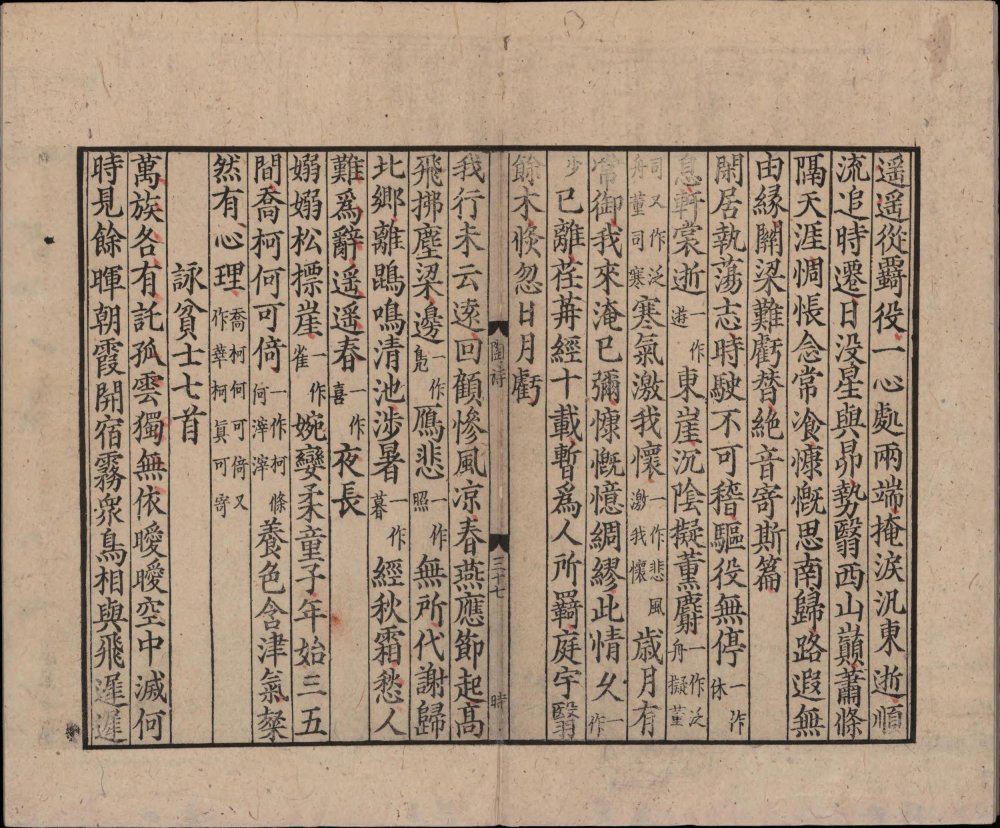 遥遥從羇役一心處兩端掩淚汎東逝順
流追時遷日没星與昴勢翳西山巔蕭條
隔天涯惆悵念常飡慷慨思南歸路遐無
由緣關梁難虧替絶音寄斯篇
閑居執蕩志時駛不可稽驅役無停一作休
息軒裳逝一作遊東崖沉陰擬薰麝一作泛舟擬董
司又作泛舟董司寒寒氣激我懷一作悲風激我懷歲月有
常御我來淹已彌慷慨憶綢繆此情久一作
少已離荏苒經十載暫爲人所羇庭宇翳
餘木倐忽日月虧
陶詩 三十七 時
我行未云遠回顧慘風凉春燕應節起高
飛拂塵梁邊一作鳬鴈悲一作照無所代謝歸
北鄉離鵾鳴清池涉暑一作暮經秋霜愁人
難爲辭遥遥春一作喜夜長
嫋嫋松摽崖一作雀婉孌柔童子年始三五
間喬柯何可倚一作柯條何滓滓養色含津氣粲
然有心理喬柯何可倚又作華柯真可寄
詠貧士七首
萬族各有託孤雲獨無依曖曖空中滅何
時見餘暉朝霞開宿霧衆鳥相與飛遲遲